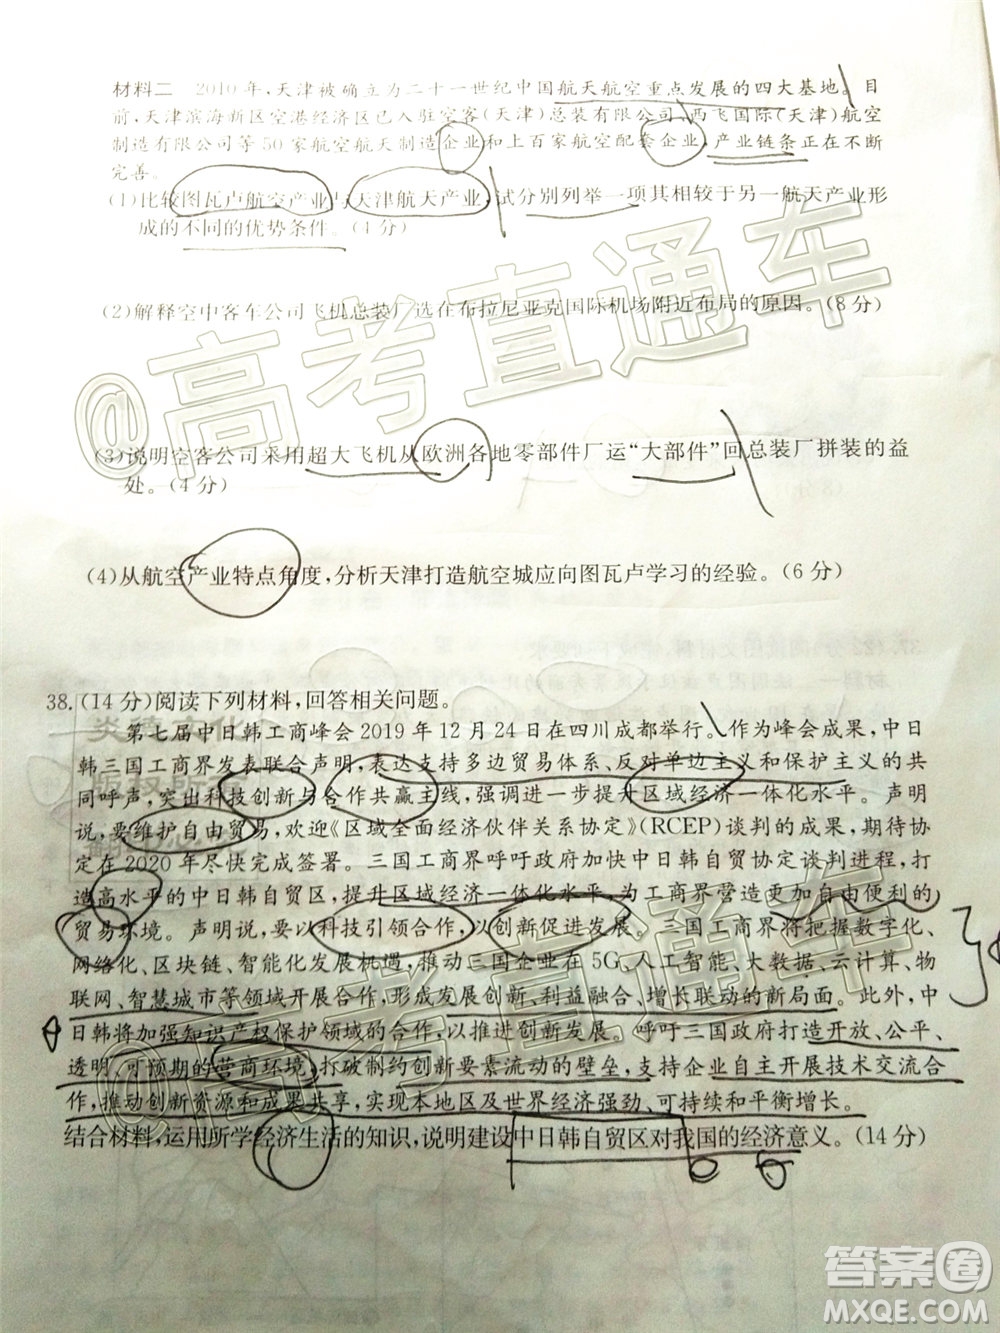 材料二 2010年,天津被确立为二十一世纪中国航天航空重点发展的四大基地。目
前,天津滨海新区空港经济区已入驻空客(天津)总装有限公司、西飞国际(天津)航空
制造有限公司等50家航空航天制造企业和上百家航空配套企业,产业链条正在不断
完善。
(1)比较图瓦卢航空产业与天津航天产业,试分别列举一项其相较于另一航天产业形
成的不同的优势条件。(4分)
(2)解释空中客车公司飞机总装厂选在布拉尼亚克国际机场附近布局的原因。(8分)
(3)说明空客公司采用超大飞机从欧洲各地零部件厂运“大部件”回总装厂拼装的益
处。(4分)
(4)从航空产业特点角度,分析天津打造航空城应向图瓦卢学习的经验。(6分)
38.(14分)阅读下列材料,回答相关问题。
第七届中日韩工商峰会2019年12月24日在四川成都举行。作为峰会成果,中日
韩三国工商界发表联合声明,表达支持多边贸易体系、反对单边主义和保护主义的共
同呼声,突出科技创新与合作共赢主线,强调进一步提升区域经济一体化水平。声明
说,要维护自由贸易,欢迎《区域全面经济伙伴关系协定》(RCEP)谈判的成果,期待协
定在2020年尽快完成签署。三国工商界呼吁政府加快中日韩自贸协定谈判进程,打
造高水平的中日韩自贸区,提升区域经济一体化水平,为工商界营造更加自由便利的
贸易环境。声明说,要以科技引领合作,以创新促进发展。三国工商界将把握数字化、
网络化、区块链、智能化发展机遇,推动三国企业在5G、人工智能、大数据、云计算、物
联网、智慧城市等领域开展合作,形成发展创新、利益融合、增长联动的新局面。此外,中
日韩将加强知识产权保护领域的合作,以推进创新发展。呼吁三国政府打造开放、公平、
透明、可预期的营商环境,打破制约创新要素流动的壁垒,支持企业自主开展技术交流合
作,推动创新资源和成果共享,实现本地区及世界经济强劲、可持续和平衡增长。
结合材料,运用所学经济生活的知识,说明建设中日韩自贸区对我国的经济意义。(14分)
@高考直通车
@高考直通车
答案圈
MXQE.COM